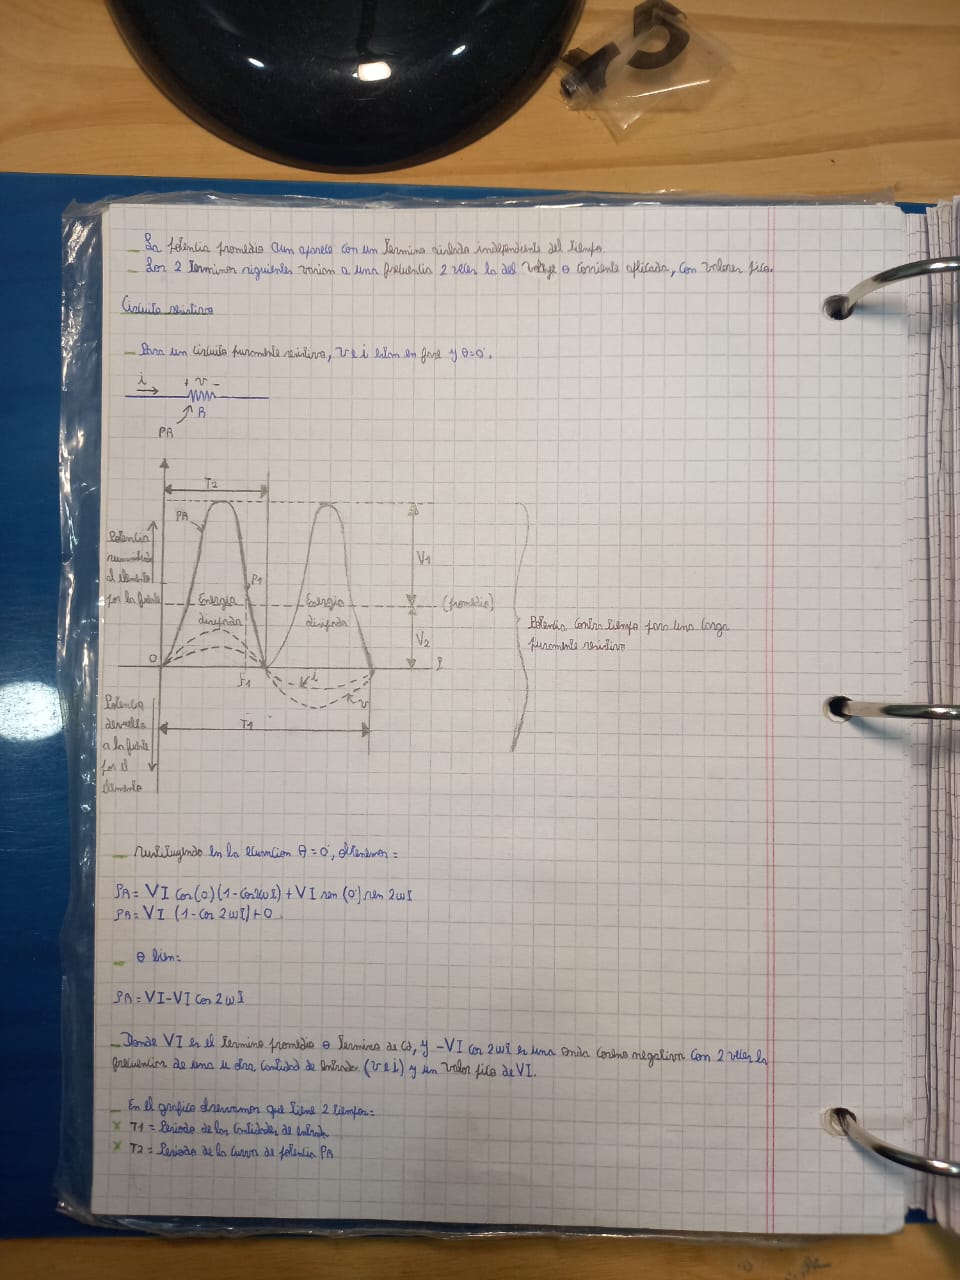 La potencia promedio aun aparece con un termino aislado independiente del tiempo.
Los 2 terminos siguientes varian a una frecuencia 2 veces la del voltaje o corriente aplicada, con valores pico.
Circuito resistivo
Para un circuito puramente resistivo, v e i estan en fase y θ=0°.
i
+ v -
R
PR
T2
PR
Potencia
suministrada
al elemento
por la fuente
P1
V1
Energia
disipada
Energia
disipada
(promedio)
V2
Potencia contra tiempo para una carga
puramente resistiva
0
t1
i
v
t
T1
Potencia
devuelta
a la fuente
por el
elemento
sustituyendo en la ecuacion θ=0°, obtenemos:
PR= VI Cos(0)(1-Cos2wt)+VI sen (0) sen 2wt
PR= VI (1-Cos 2wt)+0
o bien:
PR= VI-VI Cos 2wt
Donde VI es el termino promedio o termino de Cd, y -VI cos 2wt es una onda coseno negativa con 2 veces la
frecuencia de una u otra cantidad de entrada (v e i) y un valor pico de VI.
En el grafico observamos que tiene 2 tiempos:
x T1= Periodo de las Cantidades de entrada
x T2= Periodo de la Curva de potencia PR